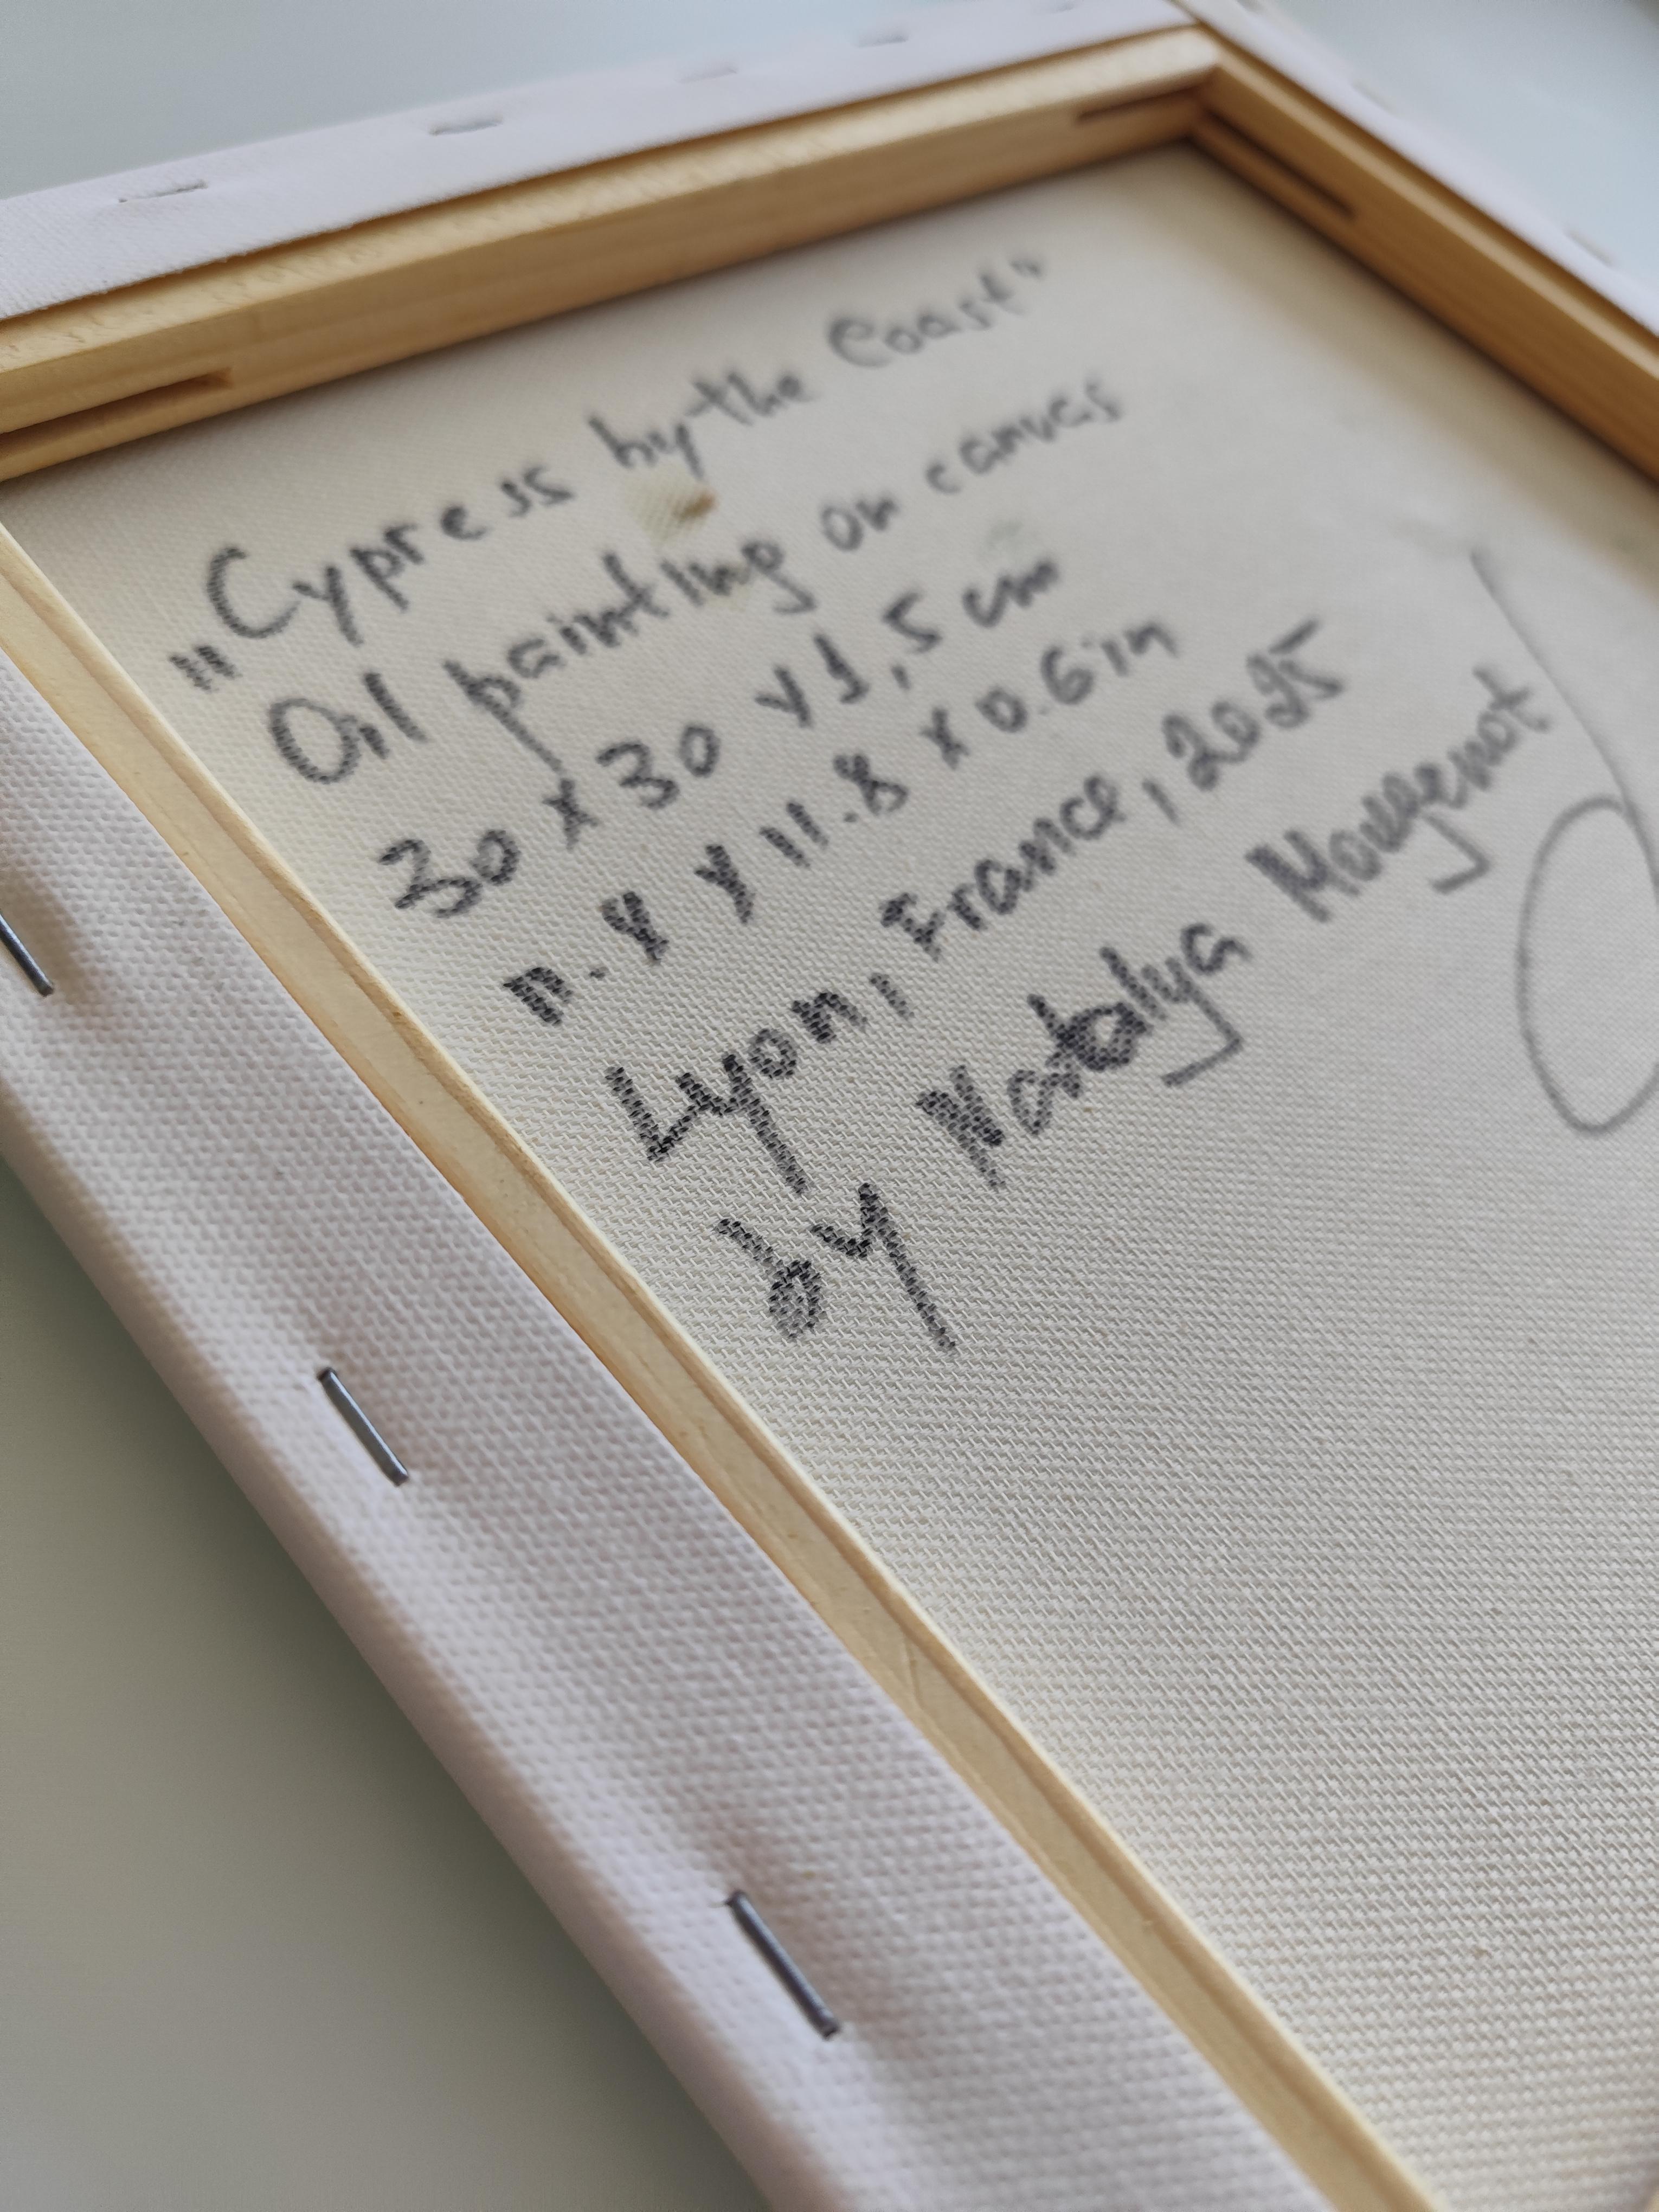 „Cypress by the Coast"
Oil painting on canvas
30 x 30 x 1,5 cm
11.8 x 11.8 x 0.6 in
Lyon, France, 2025
by Natalya Mougenot